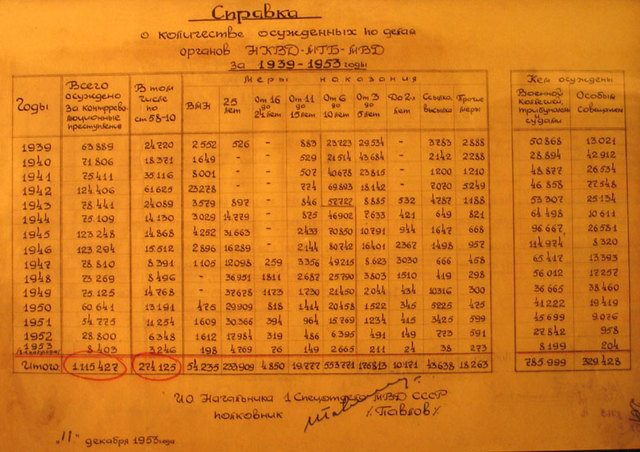 Справка
о количестве осужденных по делам
органов НКВД-МГБ-МВД
за 1939-1953 годы
Годы Всего осуждено за контррево-люционные преступления В том числе по ст 58-10 Меры наказания Кем осуждены
ВМН 25 лет От 16 до 2 лет От 11 до 15 лет От 6 до 10 лет От 3 до 5 лет До 2х лет Ссылка, высылка Прочие меры Военной коллегией, трибуналами судами Особым Совещанием
1939 63 889 24 720 2 552 526 - 883 23 723 29 534 - 3783 2888 50 868 13 021
1940 71 806 18 371 1649 - - 529 21 514 43 684 - 2142 2288 28.894 42 912
1941 75 411 35 116 8 001 - - 507 40 678 23 815 - 1200 1210 48 877 26 534
1942 124 406 61 625 23 278 - - 774 69 893 18 142 - 7070 5249 46 858 77 548
1943 78 441 24 089 3579 897 - 846 57 727 8 886 532 4787 1188 53 307 25 134
1944 75 109 14 130 3 029 14 779 - 875 46 902 7 633 421 649 821 64 498 10 611
1945 123 248 14 868 4 252 31 663 - 2433 70 850 10 791 944 1647 668 96 667 26 581
1946 123 294 15 512 2 896 16 289 - 2144 80 742 16 401 2367 1498 957 114 974 8 320
1947 78 810 8 391 1 105 12 098 259 3356 49 215 8 623 3030 666 458 65 417 13 393
1948 73 269 8 496 - 36 951 1811 2 687 25 790 3803 1510 419 298 56 012 17 257
1949 75 125 14 768 - 37 678 1173 1730 21 450 2 044 434 10 316 300 36 665 38 460
1950 60 641 13 191 475 29 909 818 1414 20 458 1 522 345 5225 475 41 222 19 419
1951 54 775 11 254 1609 30 366 394 964 15 769 1 234 415 3425 599 45 699 9 076
1952 28 800 6 348 1 612 17 984 319 486 6 395 491 149 773 591 27 842 958
1953 8 403 3 246 198 4 769 76 149 2 665 211 24 38 273 8 199 204
Итого: 1.115 427 274 125 54 235 233 909 4 850 19.777 553 771 176 813 10 171 43 638 18 263 785 999 329 428
ИО Начальника 1 Спецотдела МВД СССР
полковник /Павлов/
"11" декабря 1953 года